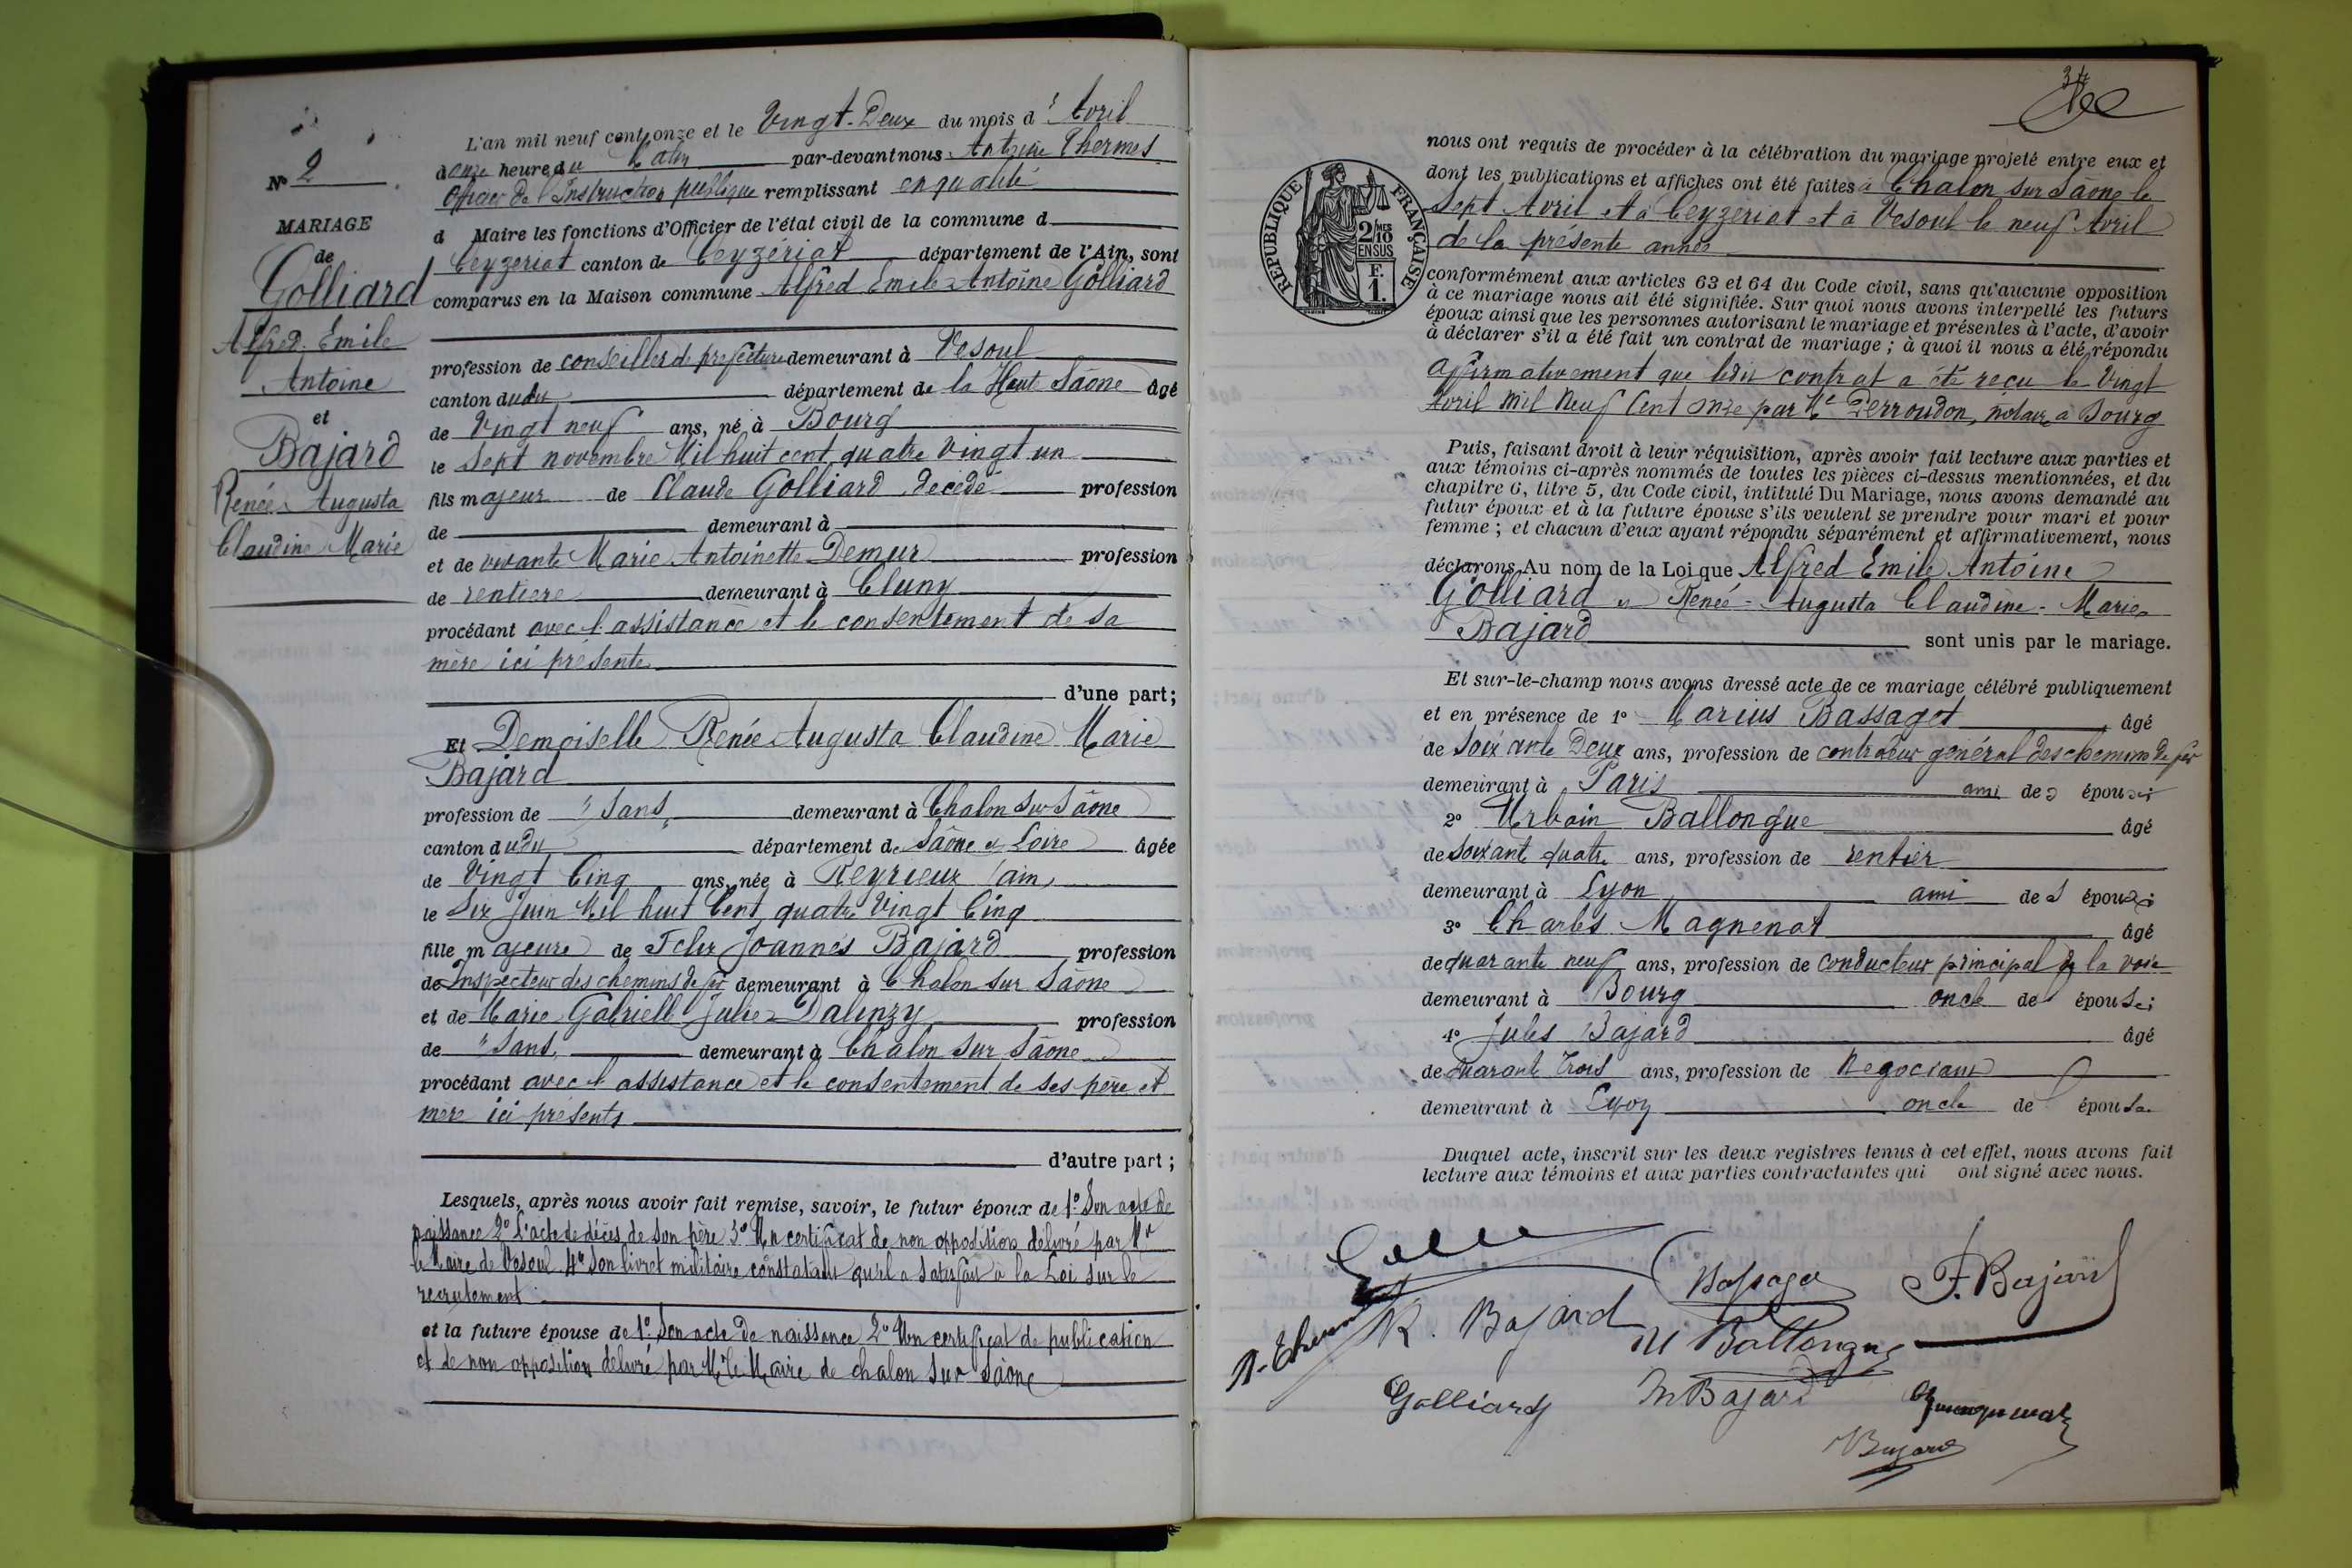 N° 2
MARIAGE
de
Golliard
Alfred Emile
Antoine
et
Bajard
Renée Augusta
Claudine Marie
L'an mil neuf cent onze et le Vingt-Deux du mois d'Avril
à onze heure du Matin par-devant nous Antoine Thermes
Officier de l'Instruction publique remplissant en qualité
d Maire les fonctions d'Officier de l'état civil de la commune d
Ceyzeriat canton de Ceyzériat département de l'Ain, sont
comparus en la Maison commune Alfred Emile Antoine Golliard
profession de conseiller de prefecture demeurant à Vesoul
canton dudu département de la Haute Sâone âgé
de Vingt neuf ans, né à Bourg
le Sept novembre Mil huit cent quatre vingt un
fils majeur de Claude Golliard décédé profession
de demeurant à
et de vivante Marie Antoinette Demur profession
de rentiere demeurant à Cluny
procédant avec l'assistance et le consentement de sa
mère ici présente
d'une part;
Et Demoiselle Renée Augusta Claudine Marie
Bajard
profession de "Sans" demeurant à Chalon sur Sâone
canton dudu département de Sâone et Loire âgée
de Vingt Cinq ans, née à Reyrieux (ain)
le Six Juin Mil huit Cent quatre Vingt Cinq
fille majeure de Felix Joannès Bajard profession
de Inspecteur des chemins de fer demeurant à Chalon sur Sâone
et de Marie Gabrielle Julie Dalinzy profession
de "Sans" demeurant à Chalon sur Sâone
procédant avec l'assistance et le consentement de ses père et
mère ici présents
d'autre part;
Lesquels, après nous avoir fait remise, savoir, le futur époux de 1° Son acte de
naissance 2° L'acte de décès de son père 3° Un certificat de non opposition délivré par Mr
le Maire de Vesoul 4° Son livret militaire constatant qu'il a satisfait à la Loi sur le
recrutement
et la future épouse de 1° Son acte de naissance 2° Un certificat de publication
et de non opposition délivré par Mr le Maire de chalon sur Sâone
34
REPUBLIQUE FRANÇAISE
2/10 MES
EN SUS
F.
1.
nous ont requis de procéder à la célébration du mariage projeté entre eux et
dont les publications et affiches ont été faites à Chalon sur Sâone le
Sept Avril et à Ceyzeriat et à Vesoul le neuf Avril
de la présente année
conformément aux articles 63 et 64 du Code civil, sans qu'aucune opposition
à ce mariage nous ait été signifiée. Sur quoi nous avons interpellé les futurs
époux ainsi que les personnes autorisant le mariage et présentes à l'acte, d'avoir
à déclarer s'il a été fait un contrat de mariage; à quoi il nous a été répondu
affirmativement que ledit contrat a été reçu le Vingt
Avril Mil Neuf Cent Onze par Me Perroudon, notaire à Bourg
Puis, faisant droit à leur réquisition, après avoir fait lecture aux parties et
aux témoins ci-après nommés de toutes les pièces ci-dessus mentionnées, et du
chapitre 6, titre 5, du Code civil, intitulé Du Mariage, nous avons demandé au
futur époux et à la future épouse s'ils veulent se prendre pour mari et pour
femme; et chacun d'eux ayant répondu séparément et affirmativement, nous
déclarons Au nom de la Loi que Alfred Emile Antoine
Golliard et Renée-Augusta Claudine-Marie
Bajard sont unis par le mariage.
Et sur-le-champ nous avons dressé acte de ce mariage célébré publiquement
et en présence de 1° Marius Bassaget âgé
de Soixante Deux ans, profession de controleur général des chemins de fer
demeurant à Paris ami des époux;
2° Urbain Ballongue âgé
de Soixante quatre ans, profession de rentier
demeurant à Lyon ami des époux;
3° Charles Magnenat âgé
de quarante neuf ans, profession de conducteur principal de la voie
demeurant à Bourg oncle de l'épouse;
4° Jules Bajard âgé
de Quarante Trois ans, profession de Negociant
demeurant à Lyon oncle de l'épouse
Duquel acte, inscrit sur les deux registres tenus à cet effet, nous avons fait
lecture aux témoins et aux parties contractantes qui ont signé avec nous.
Bassaget
F. Bajard
R. Bajard
U Ballongue
Golliard
M Bajard
Bajard